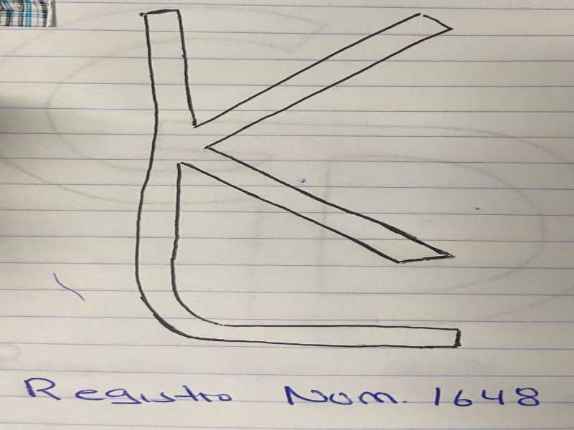 K
Registro Nom. 1648